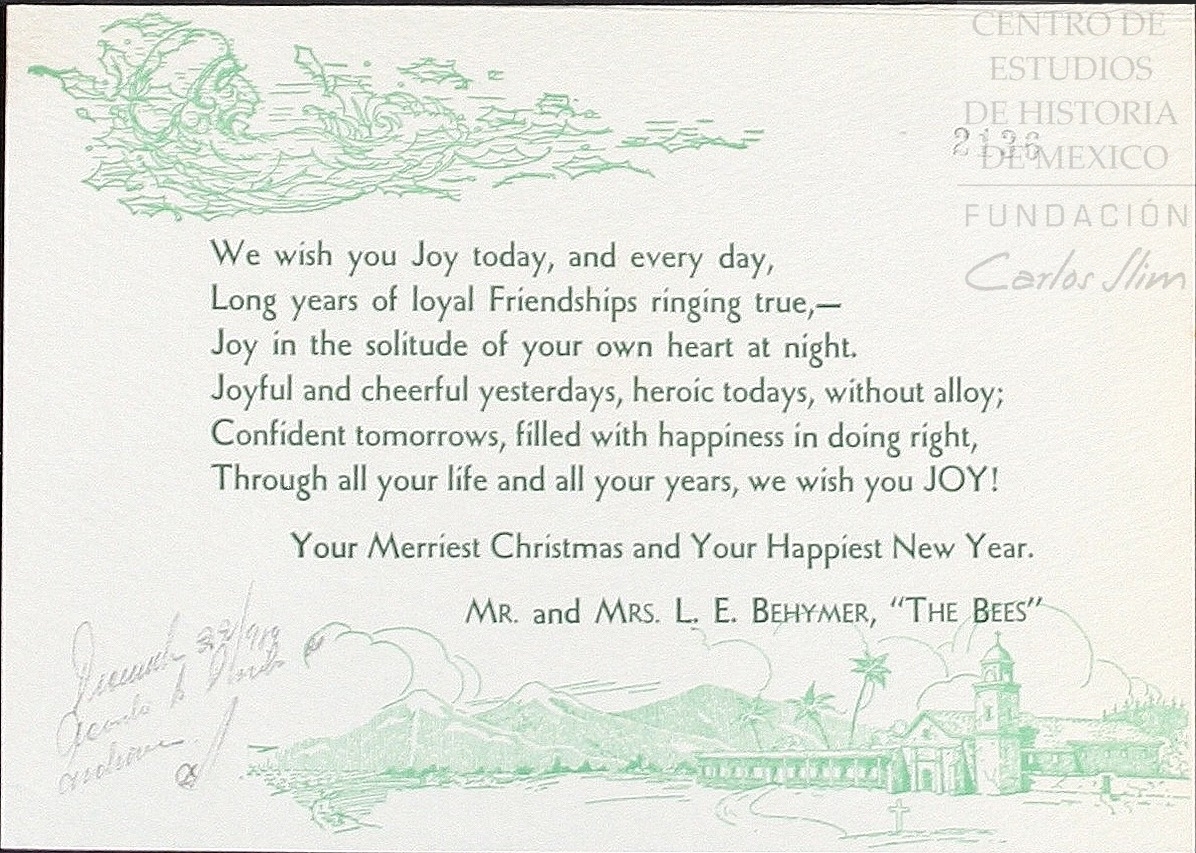 CENTRO DE
ESTUDIOS
DE HISTORIA
DE MEXICO
2136
FUNDACIÓN
Carlos Slim
We wish you Joy today, and every day,
Long years of loyal Friendships ringing true,—
Joy in the solitude of your own heart at night.
Joyful and cheerful yesterdays, heroic todays, without alloy;
Confident tomorrows, filled with happiness in doing right,
Through all your life and all your years, we wish you JOY!
Your Merriest Christmas and Your Happiest New Year.
MR. and MRS. L. E. BEHYMER, "THE BEES"